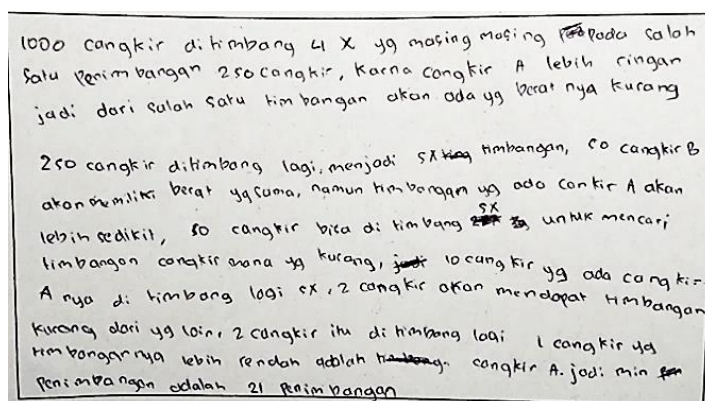 1000 cangkir ditimbang 4 X yg masing masing pada salah
satu penimbangan 250 cangkir, karna cangkir A lebih ringan
jadi dari salah satu timbangan akan ada yg berat nya kurang
250 cangkir ditimbang lagi, menjadi 5X timbangan, 50 cangkir B
akan memiliki berat yg sama, namun timbangan yg ada cankir A akan
lebih sedikit, 50 cangkir bisa di timbang 5X untuk mencari
timbangan cangkir mana yg kurang, 10 cangkir yg ada cangkir
A nya di timbang logi 5X, 2 cangkir akan mendapat timbangan
kurang dari yg lain, 2 cangkir itu di timbang lagi 1 cangkir yg
timbangannya lebih rendah adblah cangkir A. jadi min
penimbangan adalah 21 penimbangan